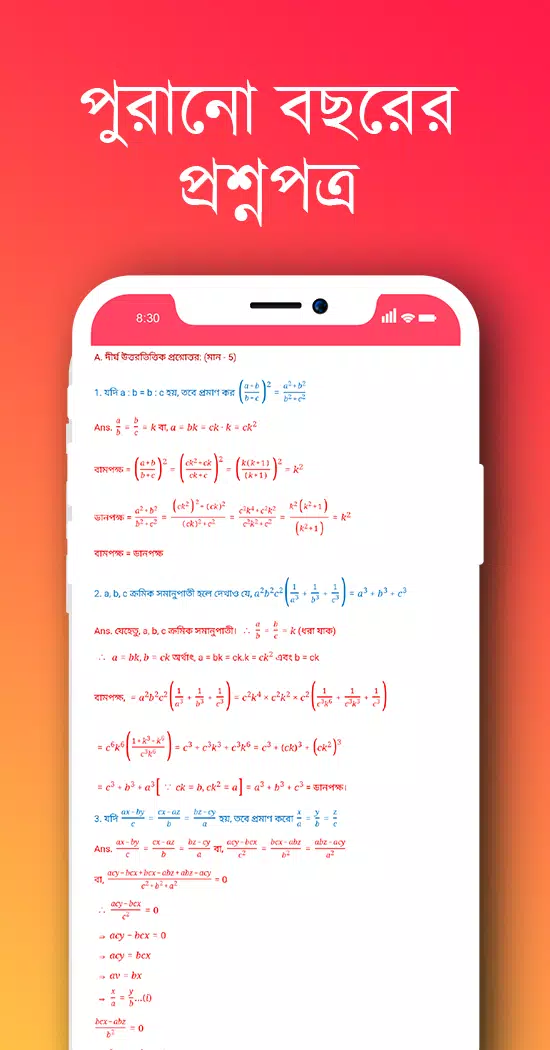 পুরানো বছরের
প্রশ্নপত্র
8:30
A. দীর্ঘ উত্তরভিত্তিক প্রশ্নোত্তর: (মান - 5)
1. যদি a : b = b : c হয়, তবে প্রমাণ কর ((a+b)/(b+c))² = (a²+b²)/(b²+c²)
Ans. a/b = b/c = k বা, a = bk = ck · k = ck²
বামপক্ষ = ((a+b)/(b+c))² = ((ck²+ck)/(ck+c))² = (k(k+1)/(k+1))² = k²
ডানপক্ষ = (a²+b²)/(b²+c²) = ((ck²)²+(ck)²)/((ck)²+c²) = (c²k⁴+c²k²)/(c²k²+c²) = k²(k²+1)/(k²+1) = k²
বামপক্ষ = ডানপক্ষ
2. a, b, c ক্রমিক সমানুপাতী হলে দেখাও যে, a²b²c²(1/a³ + 1/b³ + 1/c³) = a³ + b³ + c³
Ans. যেহেতু, a, b, c ক্রমিক সমানুপাতী। ∴ a/b = b/c = k (ধরা যাক)
∴ a = bk, b = ck অর্থাৎ, a = bk = ck.k = ck² এবং b = ck
বামপক্ষ, = a²b²c²(1/a³ + 1/b³ + 1/c³) = c²k⁴ × c²k² × c²(1/c³k⁶ + 1/c³k³ + 1/c³)
= c⁶k⁶((1+k³+k⁶)/c³k⁶) = c³ + c³k³ + c³k⁶ = c³ + (ck)³ + (ck²)³
= c³ + b³ + a³[ ∵ ck = b, ck² = a] = a³ + b³ + c³ = ডানপক্ষ।
3. যদি (ax-by)/c = (cx-az)/b = (bz-cy)/a হয়, তবে প্রমাণ করো x/a = y/b = z/c
Ans. (ax-by)/c = (cx-az)/b = (bz-cy)/a বা, (acy-bcx)/c² = (bcx-abz)/b² = (abz-acy)/a²
বা, (acy-bcx+bcx-abz+abz-acy)/(c²+b²+a²) = 0
∴ (acy-bcx)/c² = 0
⇒ acy − bcx = 0
⇒ acy = bcx
⇒ av = bx
⇒ x/a = y/b...(i)
(bcx-abz)/b² = 0